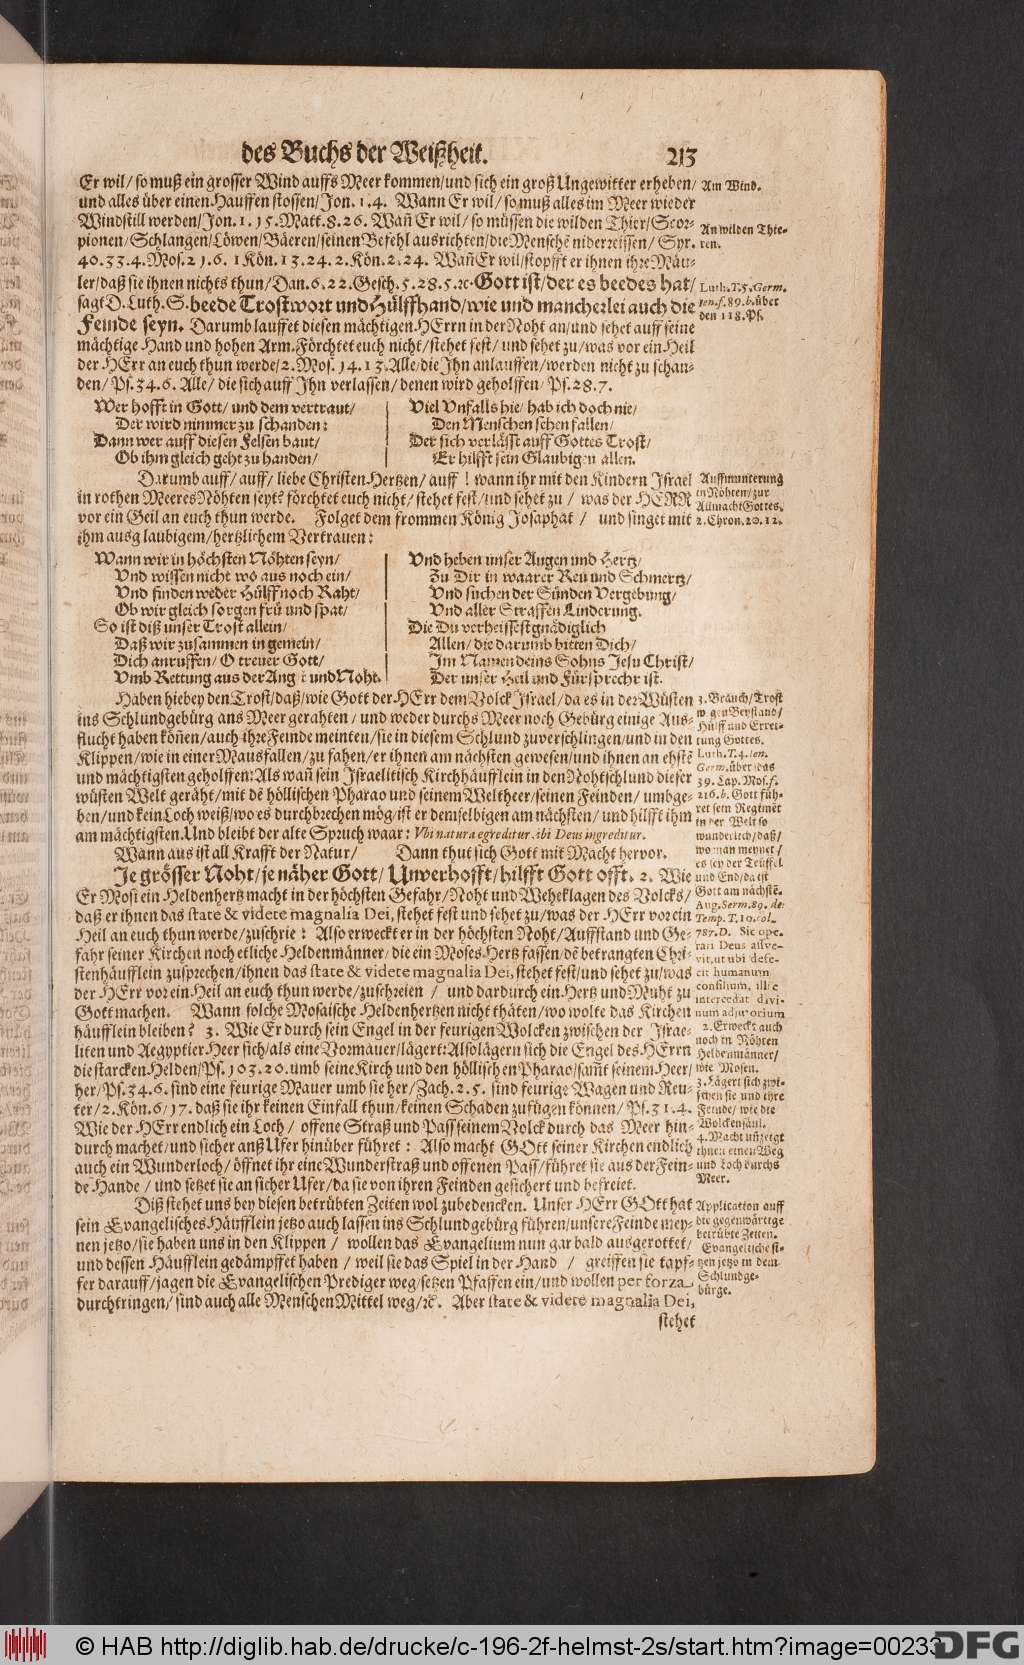 des Buchs der Weißheit.
213
Er wil/ so muß ein grosser Wind auffs Meer kommen/und sich ein groß Ungewitter erheben/
und alles über einen Hauffen stossen/Jon. 1.4. Wann Er wil/ so muß alles im Meer wieder
Windstill werden/Jon. 1. 15. Matt. 8. 26. Wañ Er wil/ so müssen die wilden Thier/ Scor-
pionen/Schlangen/Löwen/Bäeren/seinen Befehl ausrichten/die Menschẽ niderreissen/ Syr.
40. 33. 4. Mos. 21 6. 1 Kön. 13. 24. 2. Kön. 2. 24. Wañ Er wil/stopfft er ihnen ihre Mäu-
ler/daß sie ihnen nichts thun/Dan. 6. 22. Gesch. 5. 28. 5. ꝛc. Gott ist/der es beedes hat/
sagt D. Luth. S. beede Trostwort und Hülffhand/wie und mancherlei auch die
Feinde seyn. Darumb lauffet diesen mächtigen HErrn in der Noht an/und sehet auff seine
mächtige Hand und hohen Arm. Förchtet euch nicht/stehet fest/ und sehet zu/was vor ein Heil
der HErr an euch thun werde/2. Mos. 14. 13. Alle/die Jhn anlauffen/werden nicht zu schan-
den/Ps. 34. 6. Alle/ die sich auff Jhn verlassen/denen wird geholffen/ Ps. 28. 7.
Wer hofft in Gott/ und dem vertraut/
Der wird nimmer zu schanden:
Dann wer auff diesen Felsen baut/
Ob ihm gleich geht zu handen/
Viel Vnfalls hie/ hab ich doch nie/
Den Menschen sehen fallen/
Der sich verlässt auff Gottes Trost/
Er hilfft sein Glaubigen allen.
Darumb auff/ auff/ liebe Christen-Hertzen/ auff! wann ihr mit den Kindern Israel
in rothen Meeres Nöhten seyt? förchtet euch nicht/ stehet fest/und sehet zu / was der HERR
vor ein Heil an euch thun werde. Folget dem frommen König Josaphat / und singet mit
ihm aus glaubigem/hertzlichem Vertrauen:
Wann wir in höchsten Nöhten seyn/
Vnd wissen nicht wo aus noch ein/
Vnd finden weder Hülff noch Raht/
Ob wir gleich sorgen frü und spat/
So ist diß unser Trost allein/
Daß wir zusammen in gemein/
Dich anruffen/ O treuer Gott/
Vmb Rettung aus der Angst und Noht.
Vnd heben unser Augen und Hertz/
Zu Dir in waarer Reü und Schmertz/
Vnd suchen der Sünden Vergebung/
Vnd aller Straffen Linderung.
Die Du verheissest gnädiglich
Allen/ die darumb bitten Dich/
Im Namen deins Sohns Jesu Christ/
Der unser Heil und Fürsprechr ist.
Haben hiebey den Trost/daß/wie Gott der HErr dem Volck Israel/da es in der Wüsten
ins Schlundgebürg ans Meer gerahten/ und weder durchs Meer noch Gebürg einige Aus-
flucht haben köñen/auch ihre Feinde meinten/sie in diesem Schlund zuverschlingen/und in den
Klippen/wie in einer Mausfallen/zu fahen/er ihnen am nächsten gewesen/und ihnen an ehstẽ
und mächtigsten geholffen: Als wañ sein Israelitisch Kirchhäufflein in den Nohtschlund dieser
wüsten Welt geräht/mit dẽ höllischen Pharao und seinem Weltheer/seinen Feinden/ umbge-
ben/und kein Loch weiß/wo es durchbrechen mög/ist er demselbigen am nächsten/ und hilfft ihm
am mächtigsten. Und bleibt der alte Spruch waar: Vbi natura egreditur, ibi Deus ingreditur.
Wann aus ist all Krafft der Natur/ Dann thut sich Gott mit Macht hervor.
Je grösser Noht/je näher Gott/ Unverhofft/hilfft Gott offt. 2. Wie
Er Mosi ein Heldenhertz macht in der höchsten Gefahr/Noht und Weheklagen des Volcks/
daß er ihnen das state & videte magnalia Dei, stehet fest und sehet zu/was der HErr vor ein
Heil an euch thun werde/zuschrie: Also erweckt er in der höchsten Noht/Auffstand und Ge-
fahr seiner Kirchen noch etliche Heldenmänner/die ein Moses Hertz fassen/dẽ betrangten Chri-
stenhäufflein zusprechen/ihnen das state & videte magnalia Dei, stehet fest/und sehet zu/was
der HErr vor ein Heil an euch thun werde/zuschreien / und dardurch ein Hertz und Muht zu
Gott machen. Wann solche Mosaische Heldenhertzen nicht thäten/wo wolte das Kirchen
häufflein bleiben? 3. Wie Er durch sein Engel in der feurigen Wolcken zwischen der Israe-
liten und Aegyptier Heer sich/als eine Vormauer/lägert: Also lägern sich die Engel des HErrn
die starcken Helden/Ps. 103. 20. umb seine Kirch und den höllischen Pharao/samt seinem Heer/
her/Ps. 34. 6. sind eine feurige Mauer umb sie her/Zach. 2. 5. sind feurige Wagen und Reu-
ter/2. Kön. 6/17. daß sie ihr keinen Einfall thun/keinen Schaden zufügen können/ Ps. 31. 4.
Wie der HErr endlich ein Loch / offene Straß und Pass seinem Volck durch das Meer hin-
durch machet/und sicher anß Ufer hinüber führet: Also macht GOtt seiner Kirchen endlich
auch ein Wunderloch/öffnet ihr eine Wunderstraß und offenen Pass/führet sie aus der Fein-
de Hande / und setzet sie an sicher Ufer/da sie von ihren Feinden gesichert und befreiet.
Diß stehet uns bey diesen betrübten Zeiten wol zubedencken. Unser HErr GOtt hat
sein Evangelisches Häufflein jetzo auch lassen ins Schlundgebürg führen/unsere Feinde mey-
nen jetzo/sie haben uns in den Klippen / wollen das Evangelium nun gar bald ausgerottet/
und dessen Häufflein gedämpffet haben / weil sie das Spiel in der Hand / greiffen sie tapf-
fer darauff/jagen die Evangelischen Prediger weg/setzen Pfaffen ein/und wollen per forza
durchtringen/sind auch alle Menschen Mittel weg/ꝛc. Aber state & videte magnalia Dei,
stehet
Am Wind.
An wilden Thie-
ren.
Luth. T. 5. Germ.
Jen. f. 89. b. über
den 118. Ps.
Auffmunterung
in Nöhten/zur
Allmacht Gottes.
2. Chron. 20. 12.
3. Brauch/Trost
wegen Beystand/
Hülff und Erret-
tung Gottes.
Luth. T. 4. Jen.
Germ. über das
39. Cap. Mos. f.
216. b. Gott füh-
ret sein Regimẽt
in der Welt so
wunderlich/daß/
wo man meynet/
es sey der Teuffel
und End/da ist
Gott am nächstẽ.
Aug. Serm. 89. de
Temp. T. 10. col.
787. D. Sic ope-
rari Deus assve-
vit, ut ubi defe-
cit humanum
consilium, illic
intercedat divi-
num adjutorium
2. Erweckt auch
noch in Nöhten
Heldenmänner/
wie Mosen.
3. Lägert sich zwi-
schen sie und ihre
Feinde/ wie die
Wolckensäul.
4. Macht uñzeigt
ihnen einen Weg
und Loch durchs
Meer.
Application auff
die gegenwärtige
betrübte Zeiten.
Evangelische si-
tzen jetzo in dem
Schlundge-
bürge.
© HAB http://diglib.hab.de/drucke/c-196-2f-helmst-2s/start.htm?image=00233
DFG